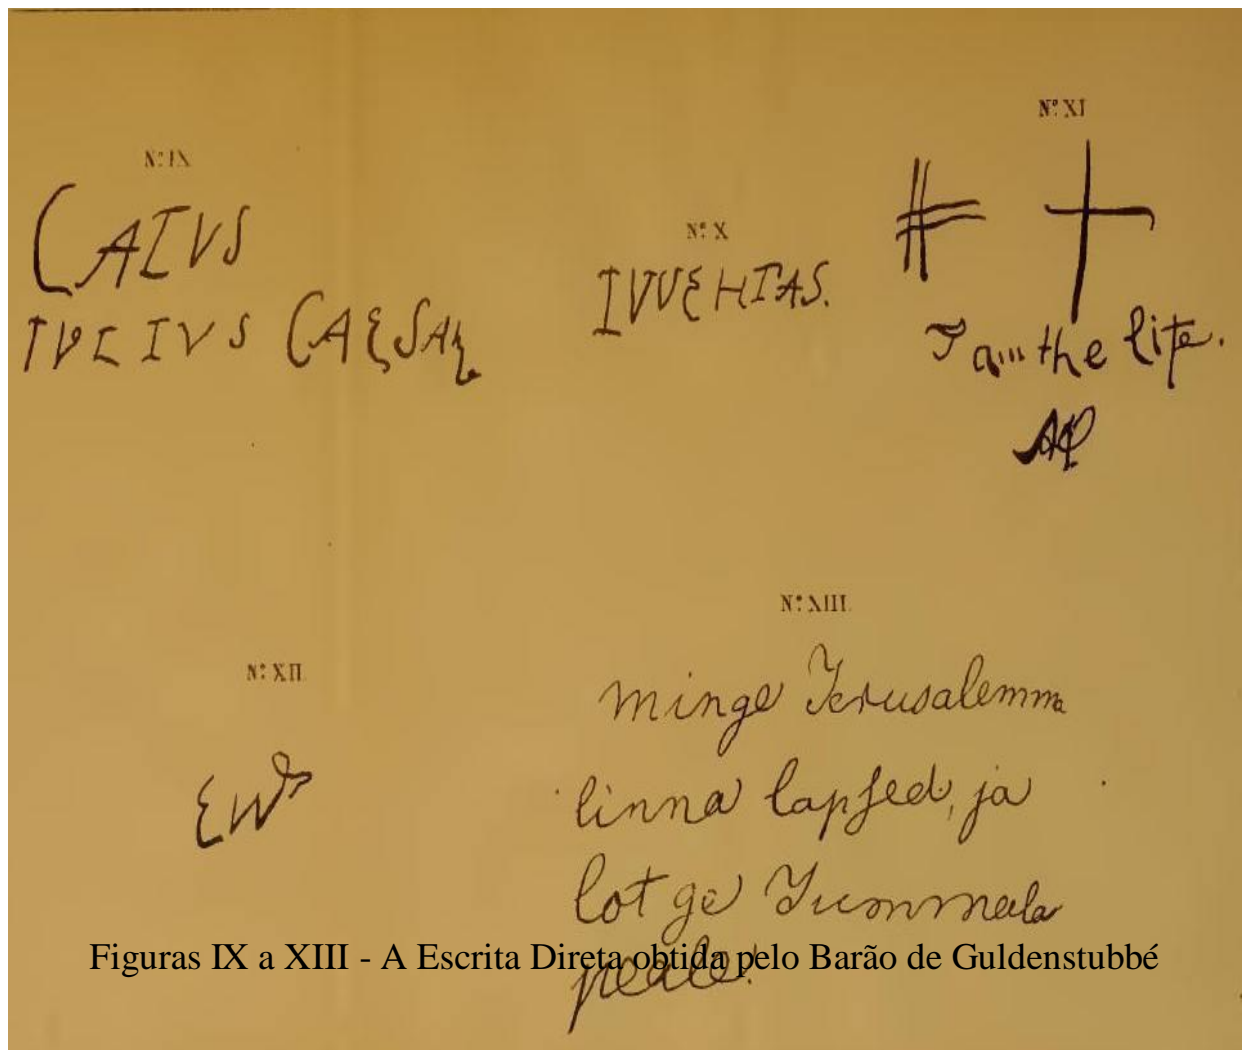 Nº IX
CAIVS
IVLIVS CAESAR
Nº X
IVVENTAS.
Nº XI
I am the life.
Nº XII
Nº XIII
minge Jerusalemma
linna lapsed, ja
lotge Jummala
peale!
Figuras IX a XIII - A Escrita Direta obtida pelo Barão de Guldenstubbé